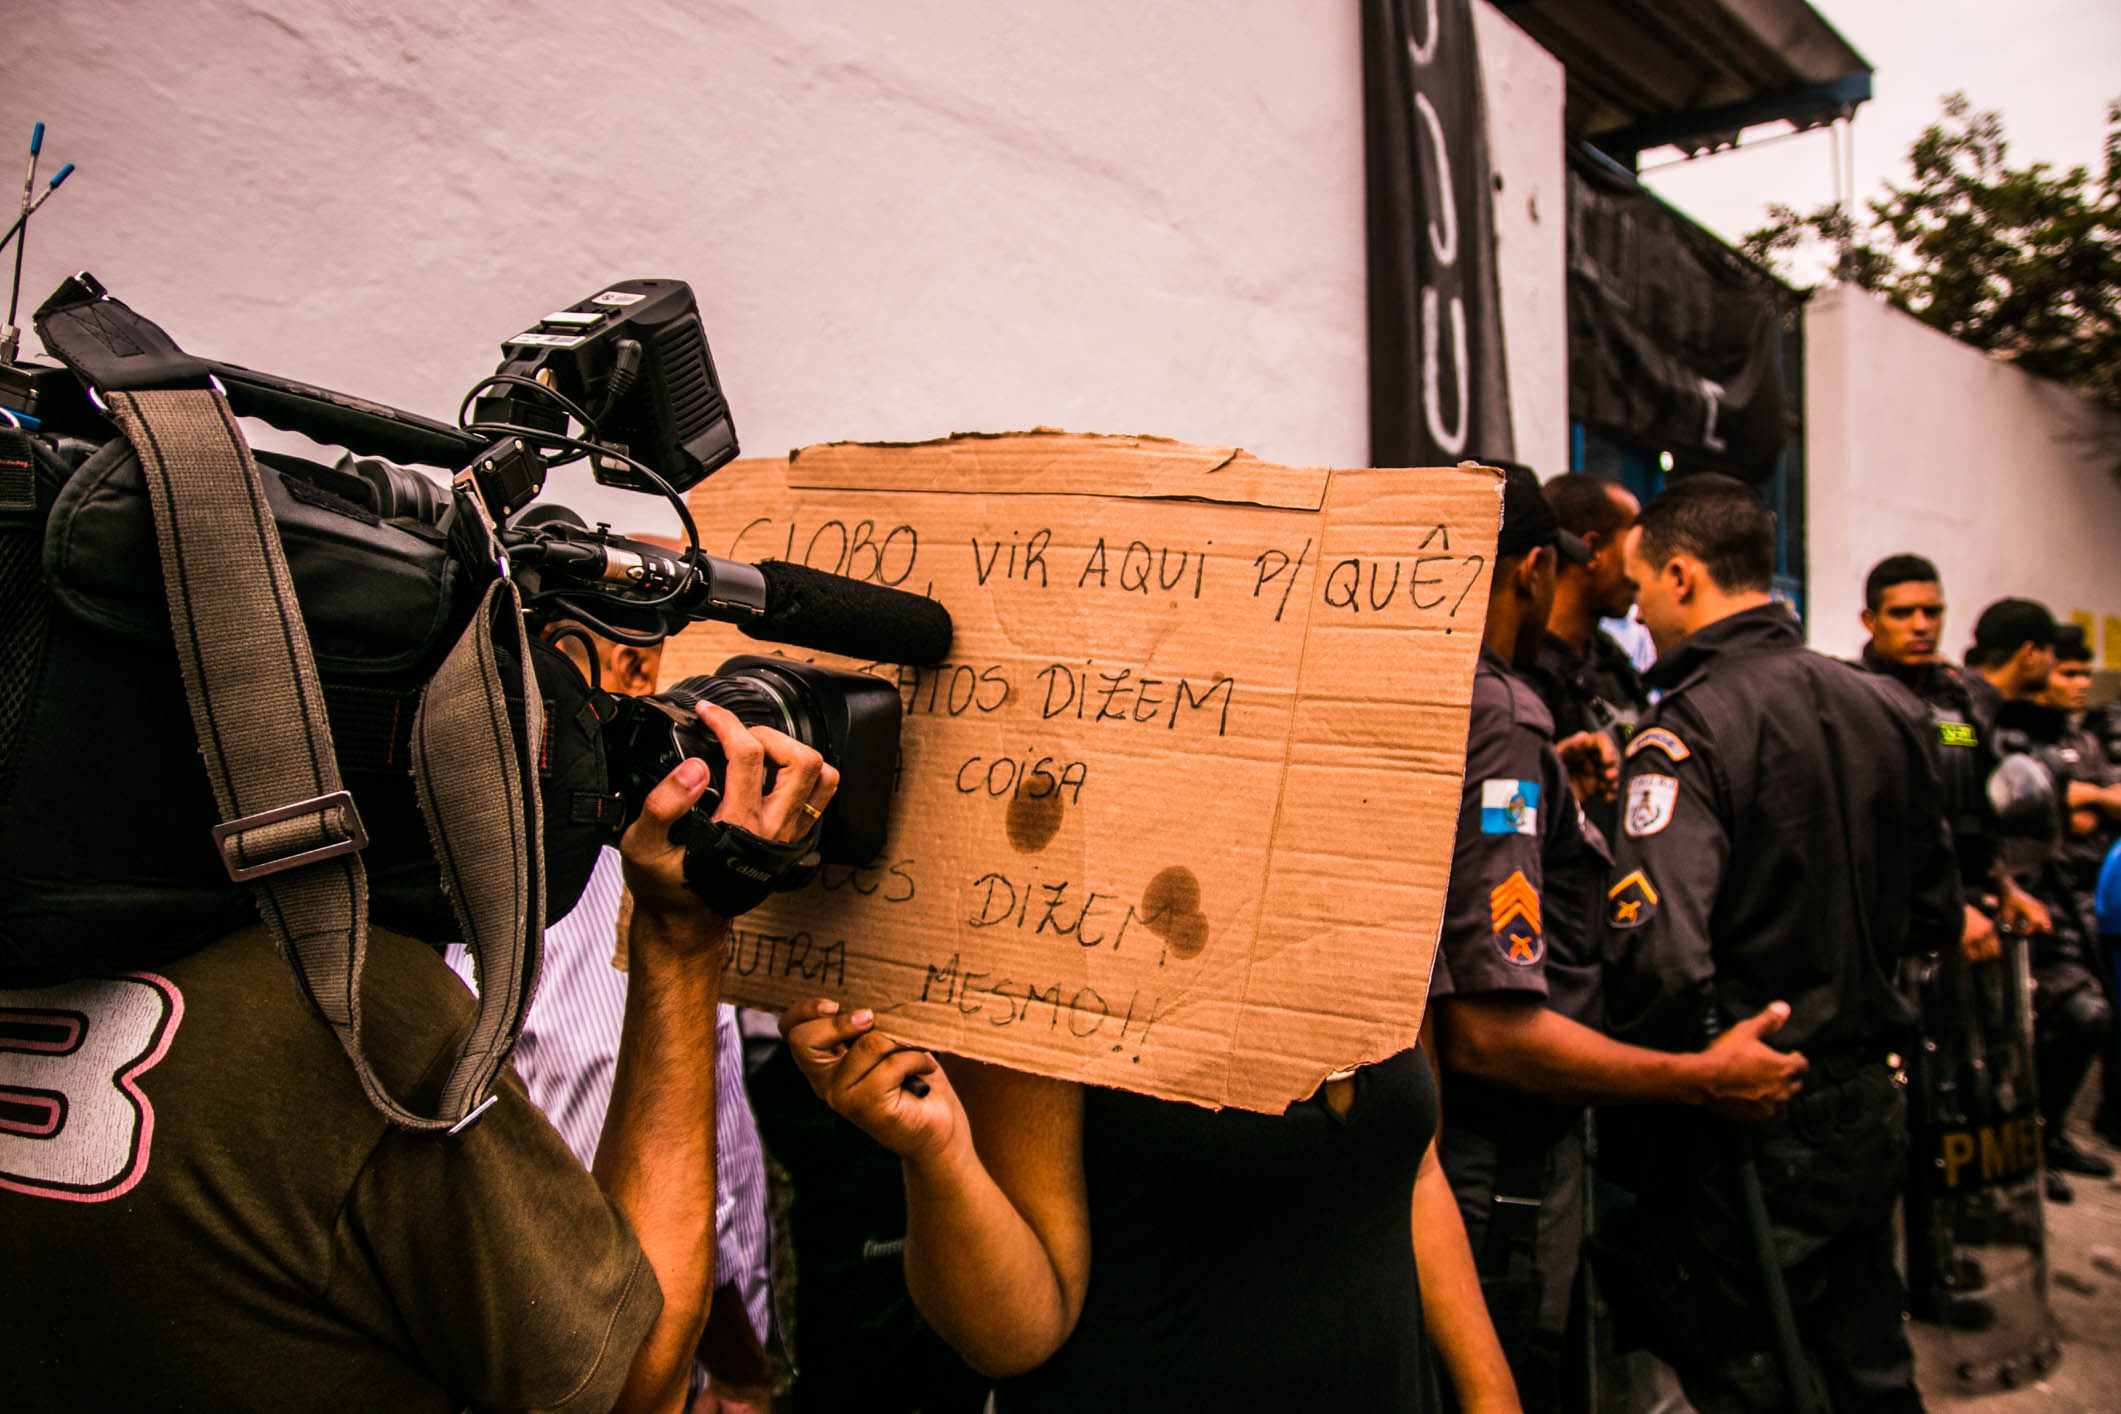 GLOBO, VIR AQUI P/ QUÊ?
FATOS DIZEM
COISA
DIZEM
OUTRA MESMO!!
Canon
PM